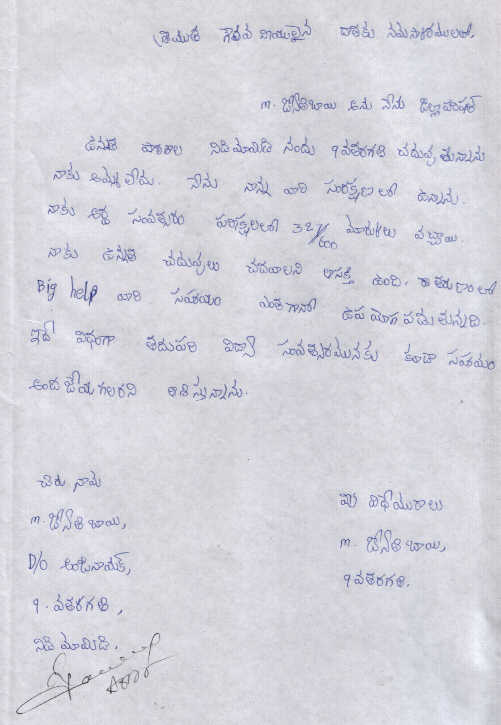 శ్రీయుత గౌరవనీయులైన దాతకు నమస్కారములతో.
m. జ్యోతిబాయి అను నేను జిల్లా పరిషత్
ఉన్నత పాఠశాల నిడిమామిడి నందు 9 వతరగతి చదువుతున్నాను
నాకు అమ్మ లేదు. నేను నాన్న వారి సంరక్షణలో ఉన్నాను.
నాకు 8వ సంవత్సరం పరీక్షలలో 327/600 మార్కులు వచ్చాయి.
నాకు ఉన్నత చదువులు చదవాలని ఆసక్తి ఉంది. ఈ తరుణంలో
Big help వారి సహాయం ఎంతగానో ఉపయోగపడుతున్నది.
ఇదే విధంగా తదుపరి విద్యా సంవత్సరమునకు కూడా సహాయం
అందజేయగలరని ఆశిస్తున్నాను.
చిరునామ
m. జ్యోతిబాయి,
D/o అంజినాయక్,
9. వతరగతి,
నిడిమామిడి.
మీ విధేయురాలు
m. జ్యోతిబాయి,
9 వతరగతి.